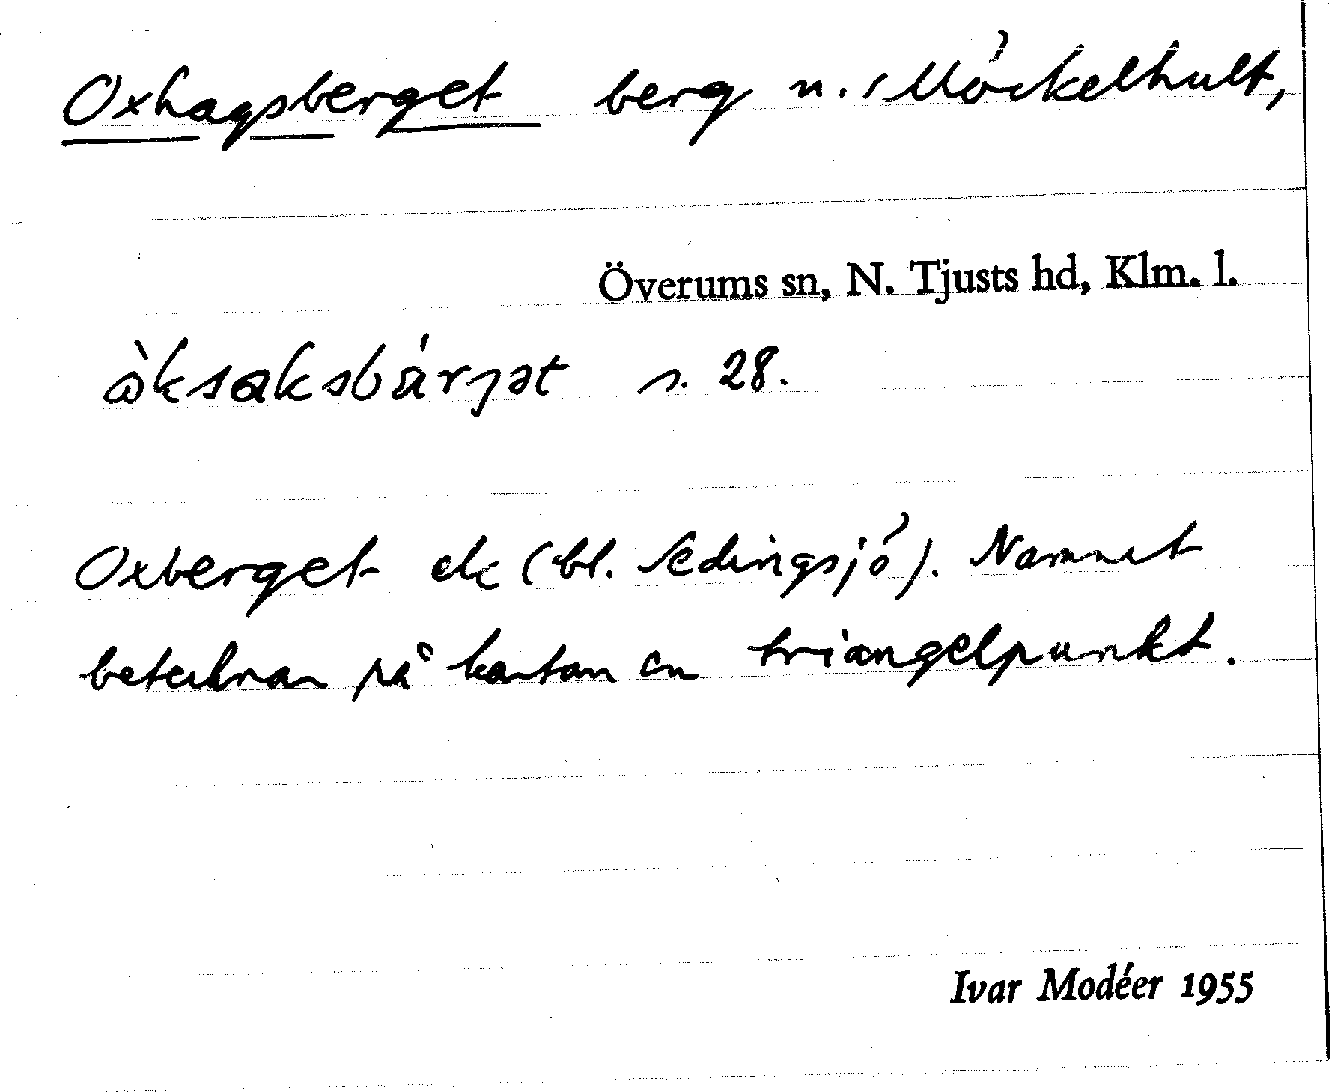 Oxhagsberget berg n. Möckelhult,
Överums sn, N. Tjusts hd, Klm. l.
s. 28.
Oxberget ek (bl. Fedingsjö). Namnet
betecknar på kartan en triangelpunkt.
Ivar Modéer 1955